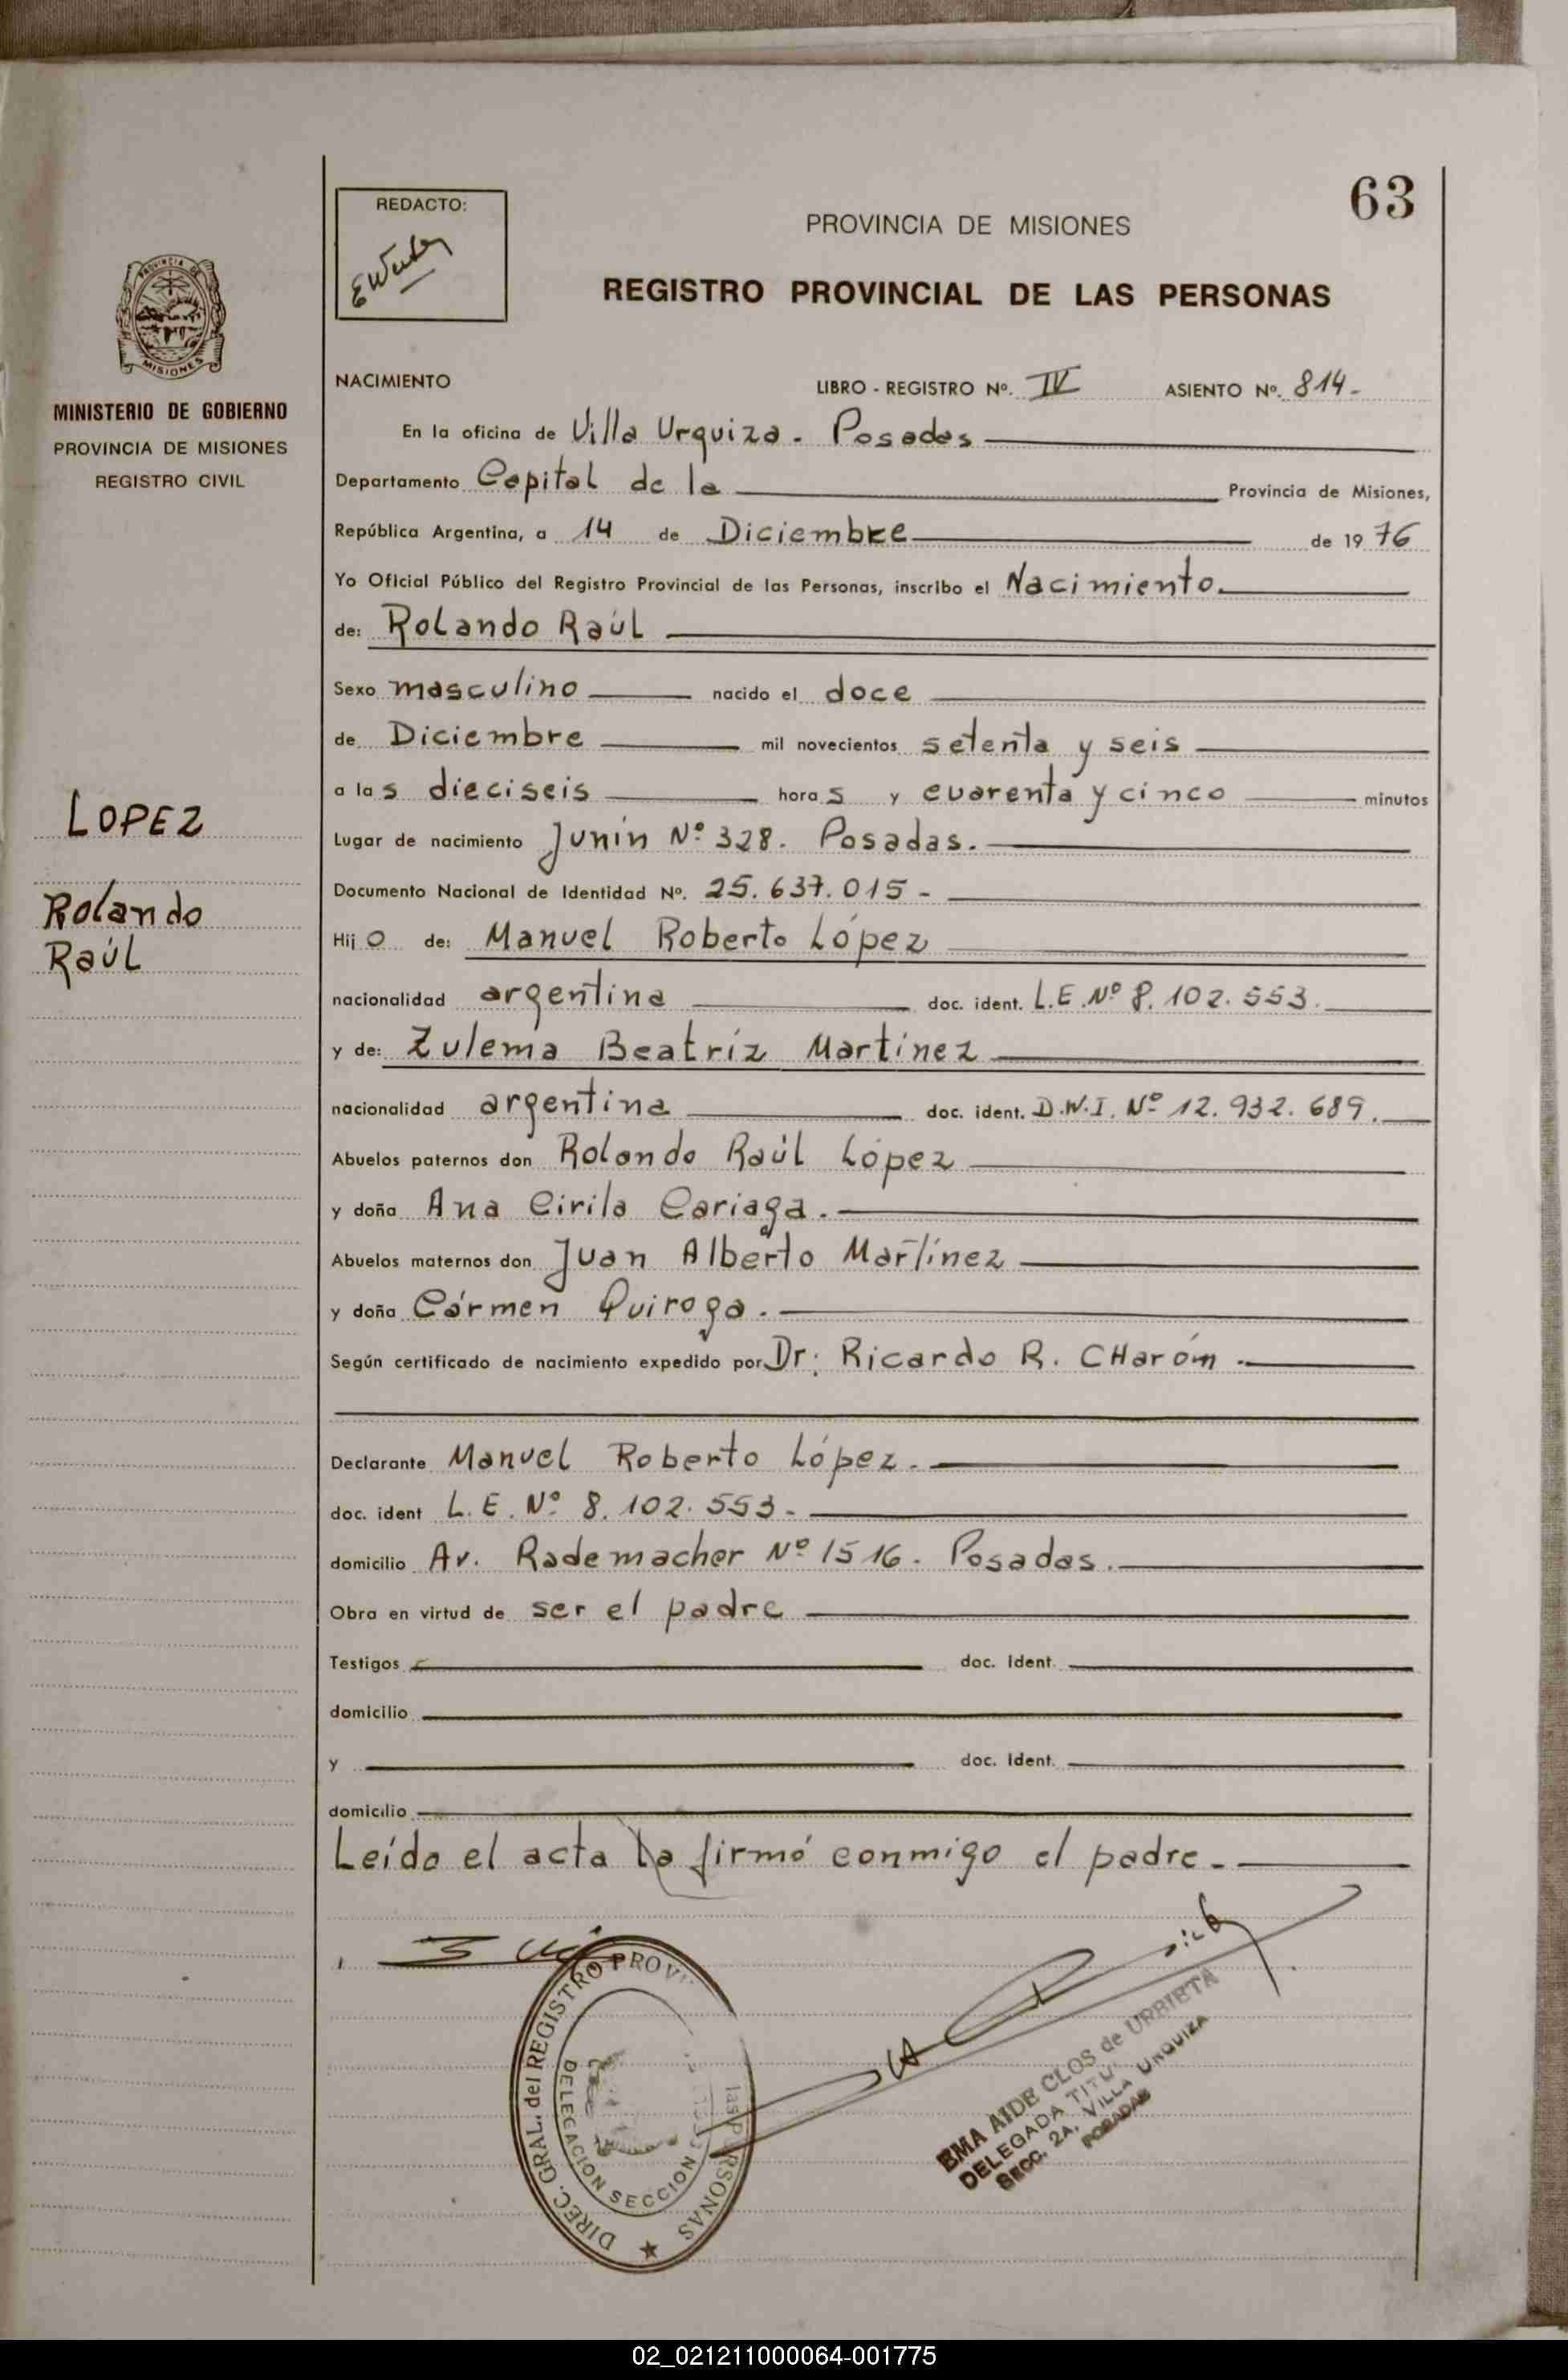 63
REDACTO:
PROVINCIA DE MISIONES
REGISTRO PROVINCIAL DE LAS PERSONAS
PROVINCIA DE
MISIONES
MINISTERIO DE GOBIERNO
PROVINCIA DE MISIONES
REGISTRO CIVIL
LOPEZ
Rolando
Raúl
NACIMIENTO LIBRO - REGISTRO Nº. IV ASIENTO Nº. 814-
En la oficina de Villa Urquiza. Posadas
Departamento Capital de la Provincia de Misiones,
República Argentina, a 14 de Diciembre de 1976
Yo Oficial Público del Registro Provincial de las Personas, inscribo el Nacimiento.
de: Rolando Raúl
Sexo masculino nacido el doce
de Diciembre mil novecientos setenta y seis
a las dieciseis horas y cuarenta y cinco minutos
Lugar de nacimiento Junín Nº 328. Posadas.
Documento Nacional de Identidad Nº. 25.637.015-
Hijo de: Manuel Roberto López
nacionalidad argentina doc. ident. L.E.Nº 8.102.553.
y de: Zulema Beatríz Martínez
nacionalidad argentina doc. ident. D.N.I. Nº 12.932.689.
Abuelos paternos don Rolando Raúl López
y doña Ana Cirila Cariaga.
Abuelos maternos don Juan Alberto Martínez
y doña Cármen Quiroga.
Según certificado de nacimiento expedido por Dr. Ricardo R. CHaróm.
Declarante Manuel Roberto López.
doc. ident L.E. Nº 8.102.553-
domicilio Av. Rademacher Nº 1516. Posadas.
Obra en virtud de ser el padre
Testigos doc. Ident.
domicilio
y doc. Ident.
domicilio
Leída el acta la firmó conmigo el padre.
DIREC. GRAL. del REGISTRO PROV las PERSONAS
DELEGACION SECCION
EMA AIDE CLOS de URBIETA
DELEGADA TITU
SECC. 2A. VILLA URQUIZA
POSADAS
02_021211000064-001775